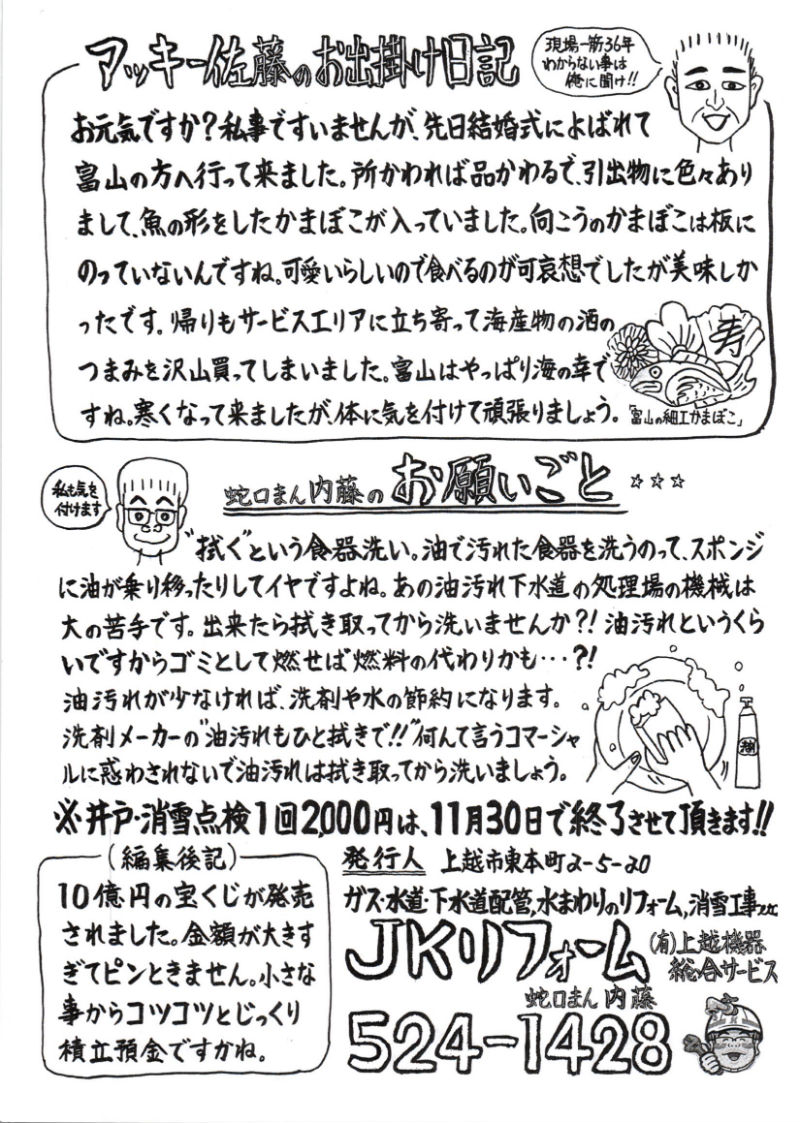 アッキー佐藤のお出掛け日記
現場一筋36年
わからない事は
俺に聞け!!
お元気ですか？私事ですいませんが、先日結婚式によばれて
富山の方へ行って来ました。所かわれば品かわるで、引出物に色々あり
まして、魚の形をしたかまぼこが入っていました。向こうのかまぼこは板に
のっていないんですね。可愛いらしいので食べるのが可哀想でしたが美味しか
ったです。帰りもサービスエリアに立ち寄って海産物の酒の
つまみを沢山買ってしまいました。富山はやっぱり海の幸で
すね。寒くなって来ましたが、体に気を付けて頑張りましょう。
寿
「富山の細工かまぼこ」
私も気を
付けます
蛇口まん内藤のお願いごと☆☆☆
"拭ぐ"という食器洗い。油で汚れた食器を洗うのって、スポンジ
に油が乗り移ったりしてイヤですよね。あの油汚れ下水道の処理場の機械は
大の苦手です。出来たら拭き取ってから洗いませんか?! 油汚れというくら
いですからゴミとして燃せば燃料の代わりかも・・・?!
油汚れが少なければ、洗剤や水の節約になります。
洗剤メーカーの"油汚れもひと拭きで!!"何んて言うコマーシャ
ルに惑わされないで油汚れは拭き取ってから洗いましょう。
※井戸・消雪点検1回2,000円は、11月30日で終了させて頂きます!!
(編集後記)
10億円の宝くじが発売
されました。金額が大きす
ぎてピンときません。小さな
事からコツコツとじっくり
積立預金ですかね。
発行人 上越市東本町2-5-20
ガス・水道・下水道配管,水まわりのリフォーム,消雪工事
JKリフォーム
(有)上越機器
総合サービス
蛇口まん内藤
524-1428